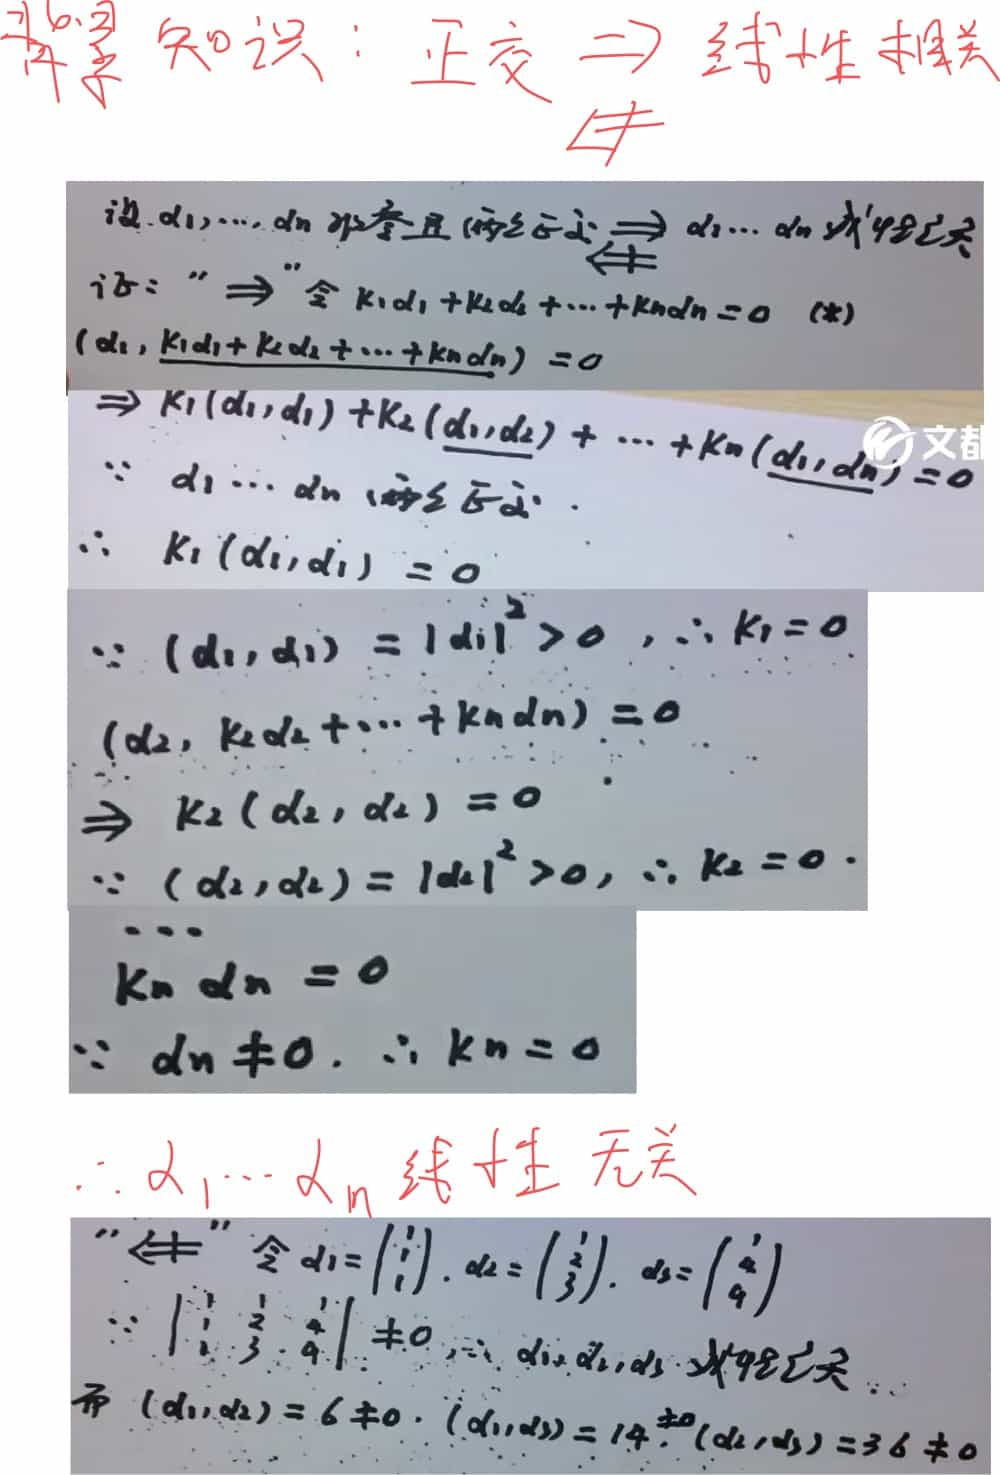 背景知识：正交 ⇒ 线性相关
⇍
设 α₁,…,αn 非零且两两正交 ⇒ α₁…αn 线性无关
⇍
证："⇒"令 k₁α₁+k₂α₂+…+knαn=0 (*)
(α₁, k₁α₁+k₂α₂+…+knαn)=0
⇒ k₁(α₁,α₁)+k₂(α₁,α₂)+…+kn(α₁,αn)=0
文都
∵ α₁…αn 两两正交.
∴ k₁(α₁,α₁)=0
∵ (α₁,α₁)=|α₁|²>0, ∴ k₁=0
(α₂, k₂α₂+…+knαn)=0
⇒ k₂(α₂,α₂)=0
∵ (α₂,α₂)=|α₂|²>0, ∴ k₂=0.
…
knαn=0
∵ αn≠0. ∴ kn=0
∴ α₁…αn 线性无关
"⇍"令 α₁=(1 1 1). α₂=(1 2 3). α₃=(1 4 9)
∵ |1 1 1; 1 2 4; 1 3 9|≠0, ∴ α₁,α₂,α₃ 线性无关
而 (α₁,α₂)=6≠0. (α₁,α₃)=14≠0. (α₂,α₃)=36≠0